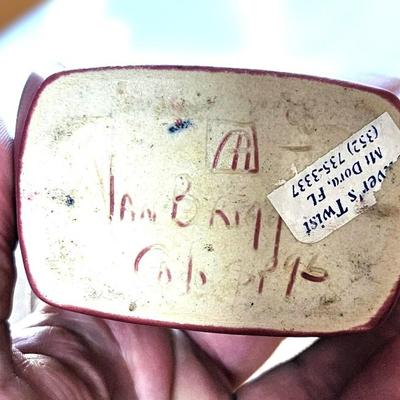 Ian Brigg
Colo spgs
ver's Twist
Mt Dora, FL
(352) 735-3337